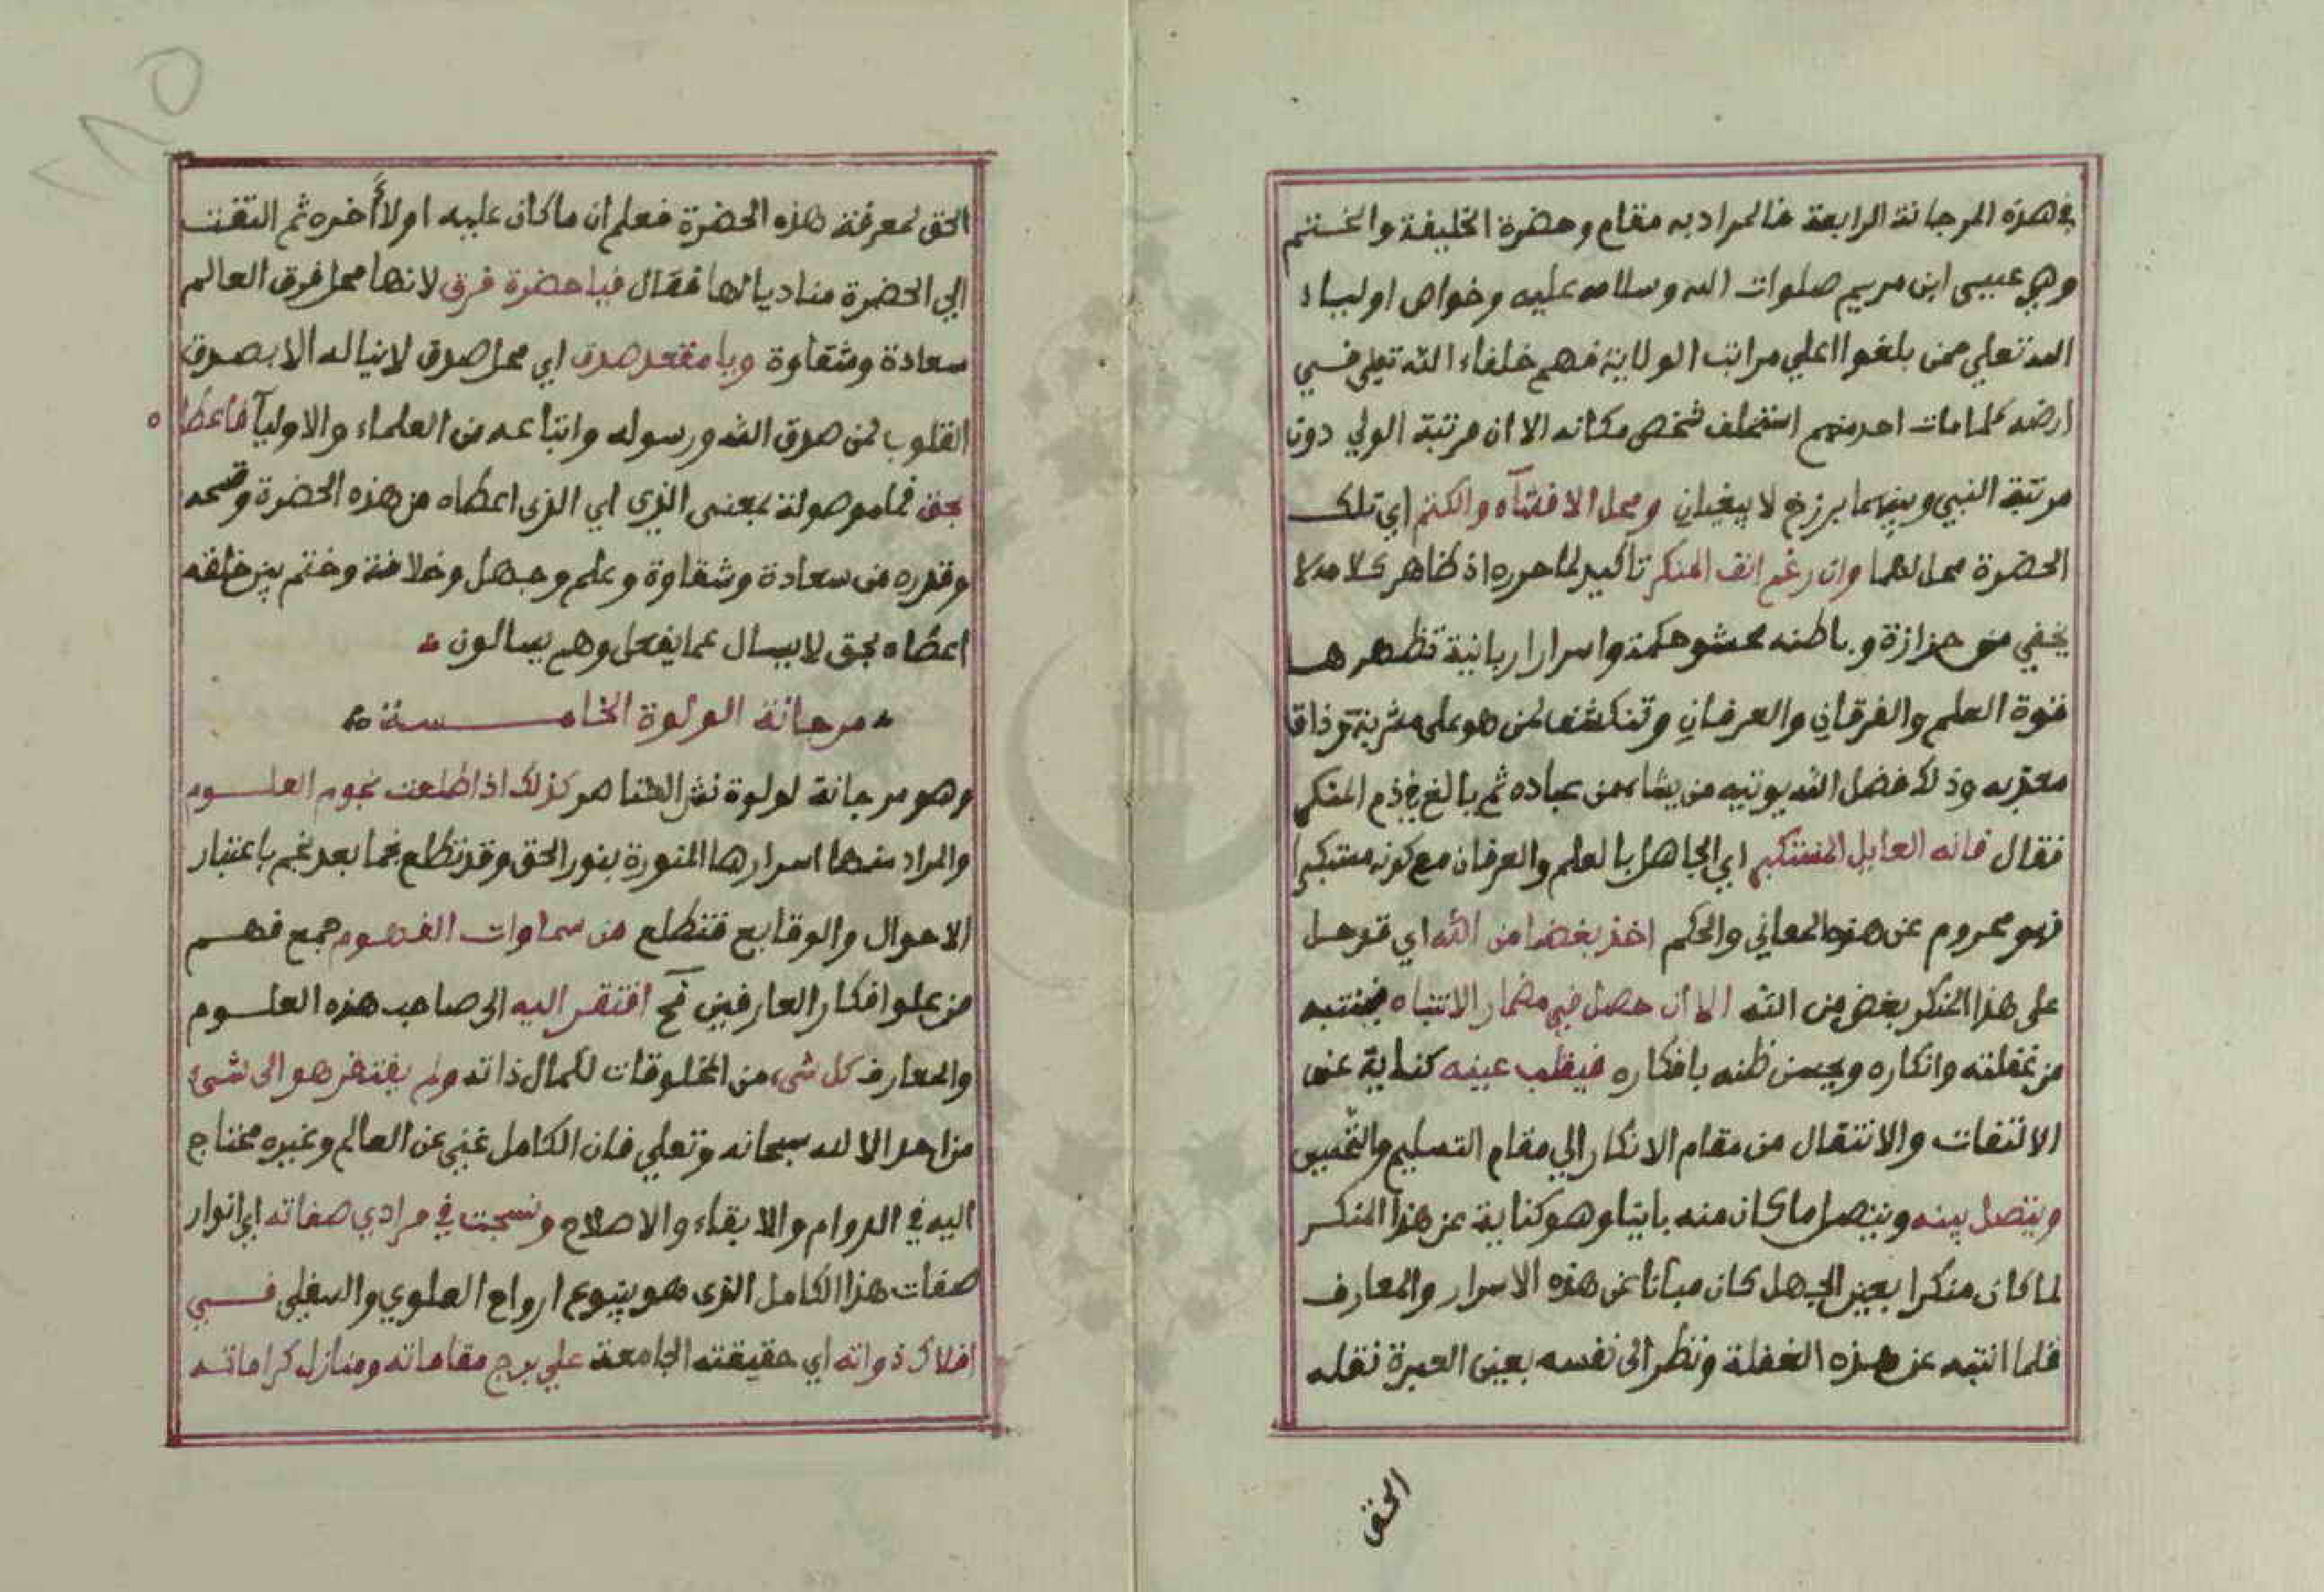 في هذه المرجانة الرابعة فالمراد به مقام وحضرة الخليفة والختم
وهي عيسى ابن مريم صلوات الله وسلامه عليه وخواص اولياء
الله تعلي ممن بلغوا اعلي مراتب الولاية فهم خلفاء الله تعلي فسي
ارضه كلما مات احد منهم استخلف شخص مكانه الا ان مرتبة الولي دون
مرتبة النبي وبينهما برزخ لا يبغيان ومحل الافشآء والكتم اي تلك
الحضرة محل لهما وان رغم انف المنكر تأكيد لما حرره اذ ظاهر كلامه لا
يخفي من حزازة وباطنه محشو حكمة واسرارا ربانية تظهرها
قوة العلم والفرقان والعرفان وتنكشف لمن هو على مشربة وذاقا
معتربه وذلك فضل الله يوتيه من يشاء من عباده ثم بالغ في ذم المنكر
فقال فانه العايل المستكبر اي الجاهل بالعلم والعرفان مع كونه مستكبرا
فهو محروم عن هذه المعاني والحكم اخذ بغضا من الله اي قد حل
على هذا المنكر بغض من الله الا ان حصل في مضمار الانتباه فينتبه
من غفلته وانكاره ويحسن ظنه بافكاره فيقلب عينه كناية عن
الالتفات والانتقال من مقام الانكار الي مقام التسليم والتحسين
ويتصل بينه ويتصل ما كان منه باينا وهو كناية عن هذا المنكر
لما كان منكرا بعين الجهل كان مباينا عن هذه الاسرار والمعارف
فلما انتبه عن هذه الغفلة ونظر الى نفسه بعين العبرة نقله
الحق
الحق لمعرفة هذه الحضرة فعلم ان ما كان عليه اولا أخره ثم التفت
الي الحضرة مناديا لها فقال فيا حضرة فرق لانها محل فرق العالم
سعادة وشقاوة ويا مقعد صدق اي محل صدق لا يناله الا بصدق
القلوب لمن صدق الله ورسوله واتباعه من العلماء والاوليآ فما عطاه
بحق فما موصولة بمعنى الذي اي الذي اعطاه من هذه الحضرة وقسمه
وقدره من سعادة وشقاوة وعلم وجهل وخلافة وختم بين خلقه
اعطاه بحق لا يسال عما يفعل وهم يسالون
مرجانة الولوة الخامسة
وهو مرجانة لولوة نشا الظاهر كذلك اذا طلعت نجوم العلوم
والمراد منها اسرارها المنورة بنور الحق وقد تطلع نجما بعد نجم باعتبار
الاحوال والوقايع فتطلع من سماوات الفهوم جمع فهم
من علو افكار العارفين فح افتقر اليه الى صاحب هذه العلوم
والمعارف كل شيء من المخلوقات لكمال ذاته ولم يفتقر هو الى شيء
من احد الا لله سبحانه وتعلي فان الكامل غني عن العالم وغيره محتاج
اليه في الدوام والابقاء والاصلاح وسبحت في مرادي صفاته اي انوار
صفات هذا الكامل الذي هو ينبوع ارواح العلوي والسفلي فسي
افلاك ذواته اي حقيقته الجامعة علي برج مقاماته ومنازل كراماته